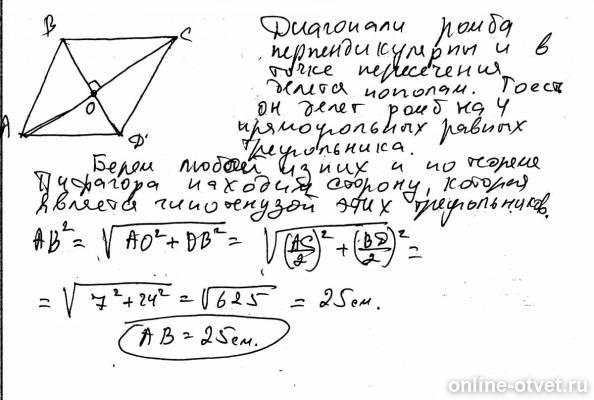 B
C
Диагонали ромба
перпендикулярны и в
точке пересечения
делятся пополам. Тоест
O
он делет ромб на 4
A
D
прямоугольных равных
треугольника.
Берем любой из них и по теореме
Пифагора находим сторону, которая
является гипотенузой этих треугольников.
AB² = √(AO² + OB²) = √((AC/2)² + (BD/2)²) =
= √(7² + 24²) = √625 = 25 см.
AB = 25 см.
online-otvet.ru